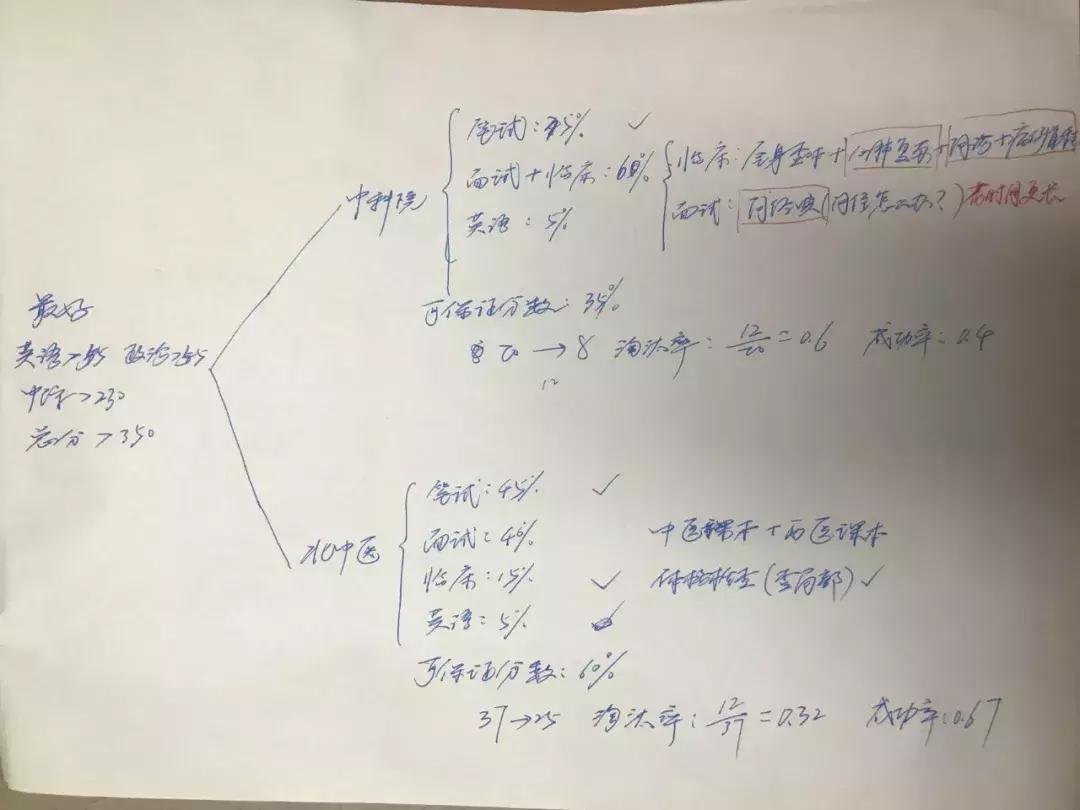 最好
英语>55 政治>55
中综>230
总分>350
中科院
笔试:35% ✓
面试+临床:60%
英语:5%
临床:全身查体+心肺复苏+问诊+
面试:问经典(问住怎么办?)花时间更长
可保证分数:35%
20→8 淘汰率:12/20=0.6 成功率:0.4
12
北中医
笔试:45% ✓
面试:40% 中医课本+西医课本
临床:15% ✓ 体格检查(查局部)✓
英语:5%
可保证分数:60%
37→25 淘汰率:12/37=0.32 成功率:0.67